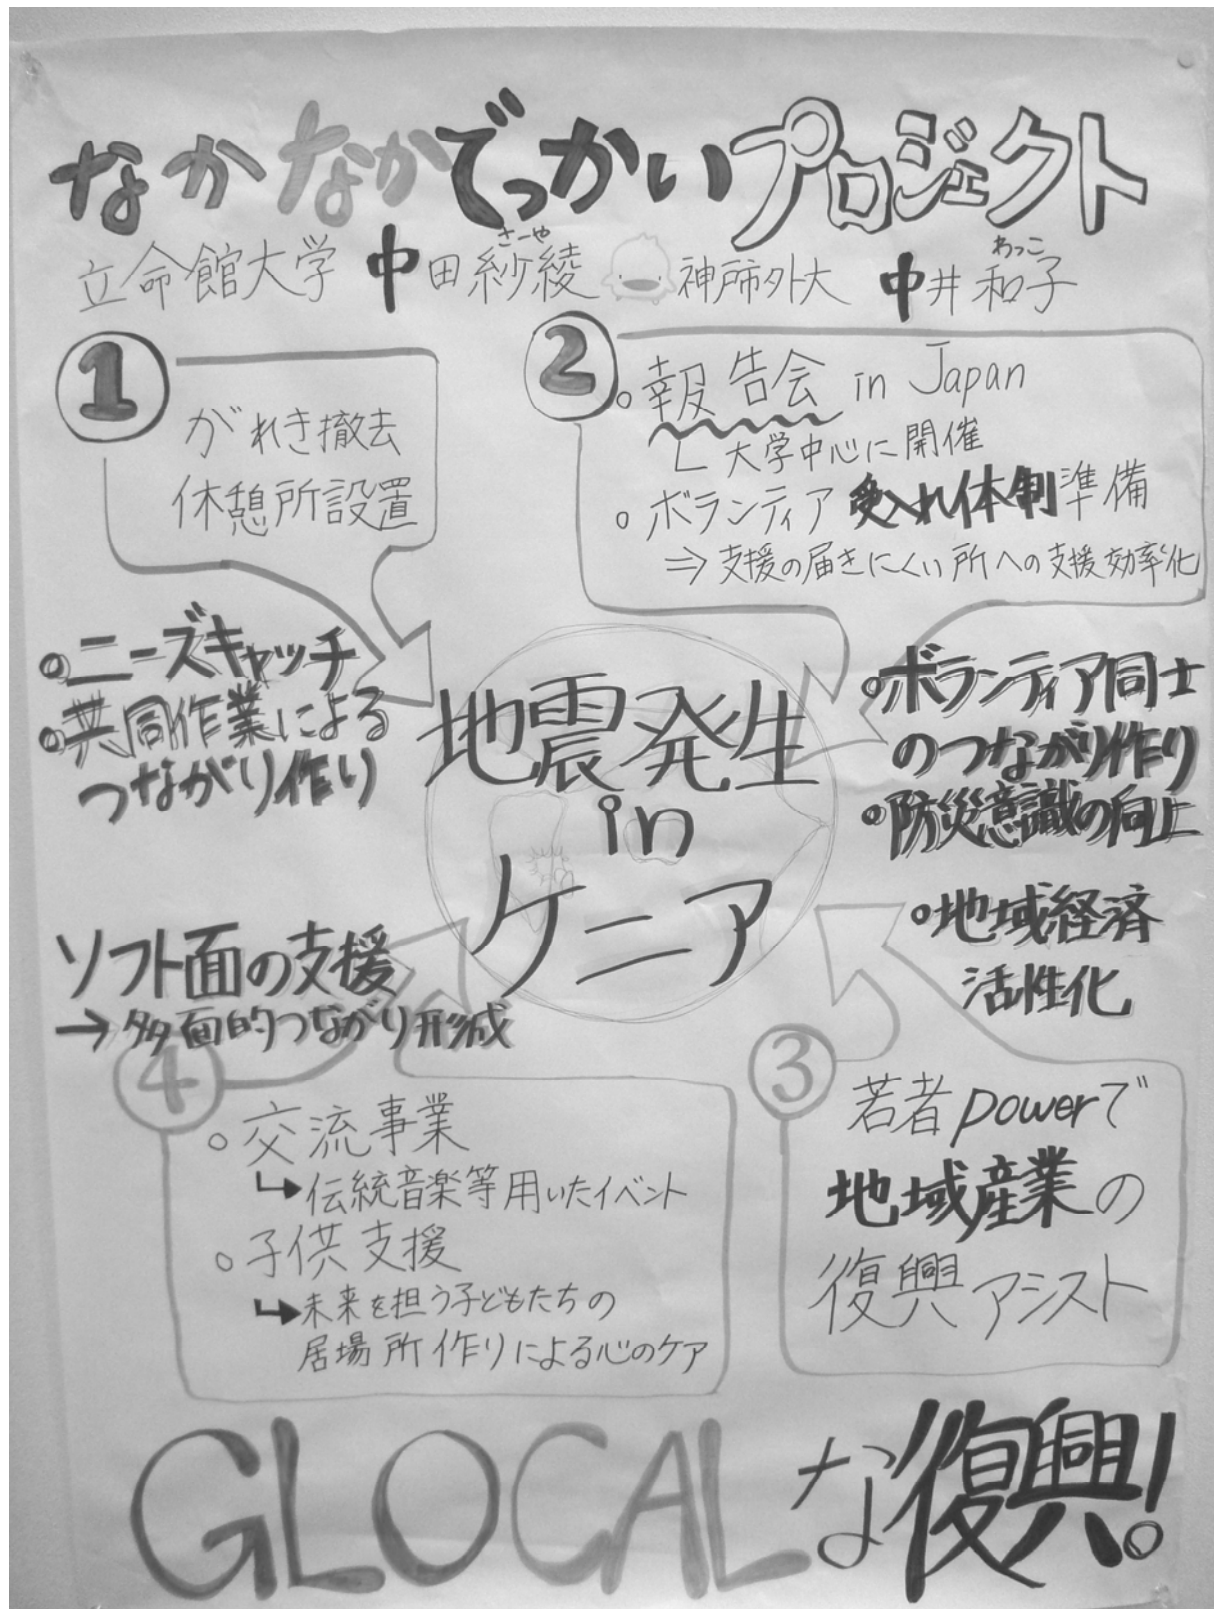 なかなかでっかいプロジェクト
立命館大学 中田紗綾 神戸市外大 中井和子
さーや わっこ
1
がれき撤去
休憩所設置
2
○報告会 in Japan
└ 大学中心に開催
○ボランティア受入れ体制準備
⇒支援の届きにくい所への支援効率化
○ニーズキャッチ
○共同作業による
つながり作り
地震発生
in
ケニア
○ボランティア同士
のつながり作り
○防災意識の向上
○地域経済
活性化
ソフト面の支援
→多面的つながり形成
4
○交流事業
↳伝統音楽等用いたイベント
○子供支援
↳未来を担う子どもたちの
居場所作りによる心のケア
3
若者powerで
地域産業の
復興アシスト
GLOCALな復興!